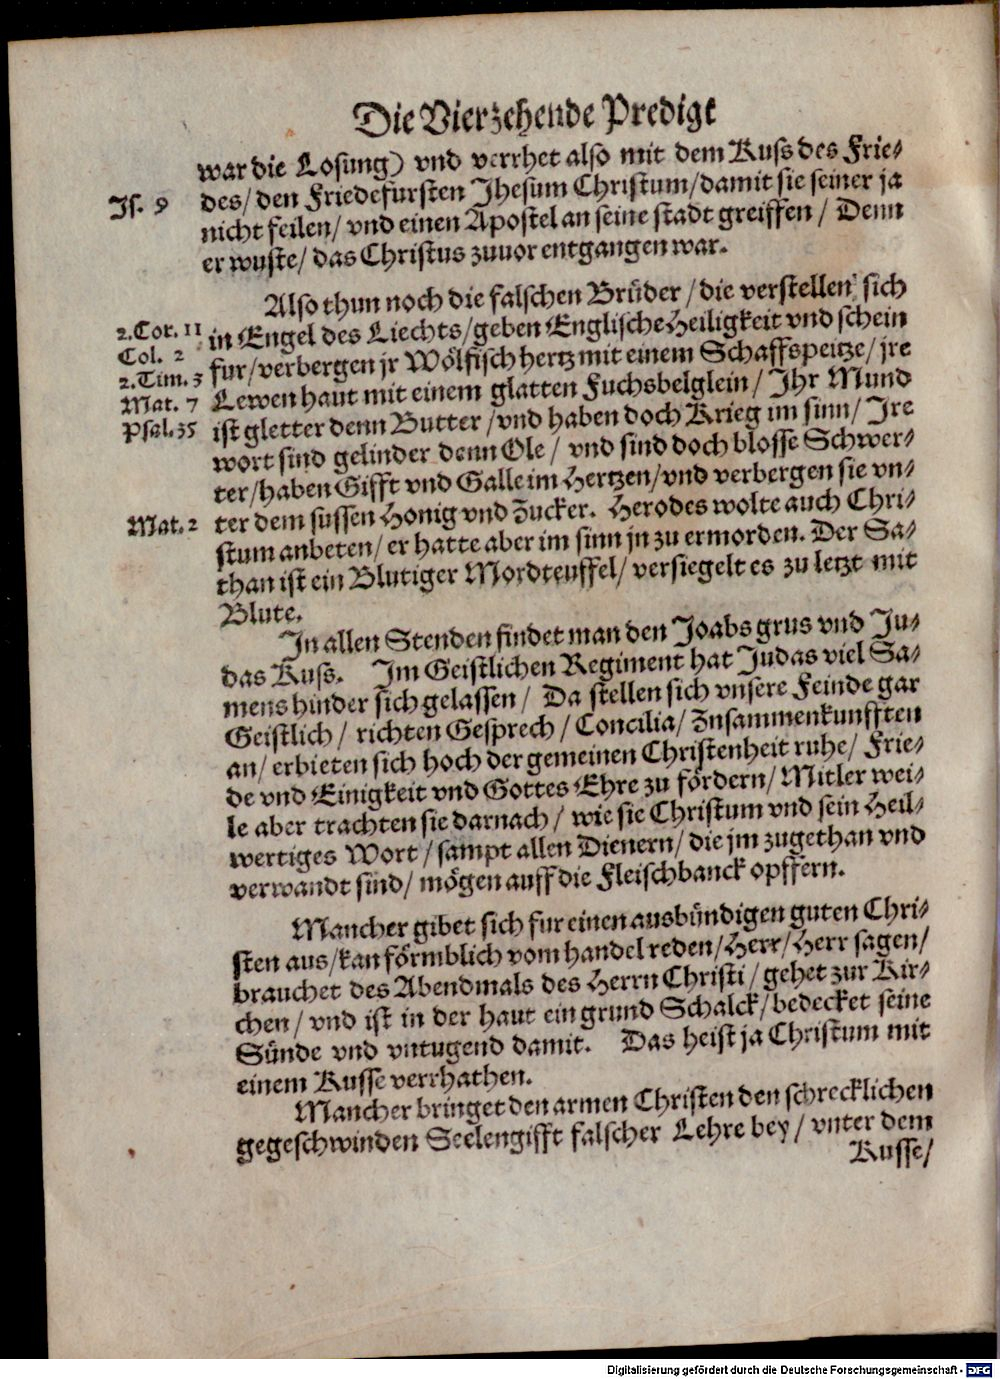 Die Vierzehende Predigt
war die Losung) vnd verrhet also mit dem Kuss des Frie-
Js. 9 des/ den Friedefursten Jhesum Christum/ damit sie seiner ja
nicht feilen/ vnd einen Apostel an seine stadt greiffen/ Denn
er wuste/ das Christus zuuor entgangen war.
Also thun noch die falschen Brüder/ die verstellen sich
2. Cor. 11 in Engel des Liechts/ geben Englische Heiligkeit vnd schein
Col. 2 fur/ verbergen jr Wölfisch hertz mit einem Schaffspeltze/ jre
2. Tim. 3 Lewen haut mit einem glatten Fuchsbelglein/ Ihr Mund
Mat. 7 ist gletter denn Butter/ vnd haben doch Krieg im sinn/ Ire
Psal. 35 wort sind gelinder denn Ole/ vnd sind doch blosse Schwer-
ter/ haben Gifft vnd Galle im Hertzen/ vnd verbergen sie vn-
Mat. 2 ter dem sussen Honig vnd Zucker. Herodes wolte auch Chri-
stum anbeten/ er hatte aber im sinn jn zu ermorden. Der Sa-
than ist ein Blutiger Mordteuffel/ versiegelt es zu letzt mit
Blute.
In allen Stenden findet man den Joabs grus vnd Ju-
das Kuss. Im Geistlichen Regiment hat Judas viel Sa-
mens hinder sich gelassen/ Da stellen sich vnsere Feinde gar
Geistlich/ richten Gesprech/ Concilia/ Zusammenkunfften
an/ erbieten sich hoch der gemeinen Christenheit ruhe/ Frie-
de vnd Einigkeit vnd Gottes Ehre zu fördern/ Mitler wei-
le aber trachten sie darnach/ wie sie Christum vnd sein Heil-
wertiges Wort/ sampt allen Dienern/ die jm zugethan vnd
verwandt sind/ mögen auff die Fleischbanck opffern.
Mancher gibet sich fur einen ausbündigen guten Chri-
sten aus/ kan förmblich vom handel reden/ Herr/ Herr sagen/
brauchet des Abendmals des Herrn Christi/ gehet zur Kir-
chen/ vnd ist in der haut ein grund Schalck/ bedecket seine
Sünde vnd vntugend damit. Das heist ja Christum mit
einem Kusse verrhathen.
Mancher bringet den armen Christen den schrecklichen
gegeschwinden Seelengifft falscher Lehre bey/ vnter dem
Kusse/
Digitalisierung gefördert durch die Deutsche Forschungsgemeinschaft - DFG